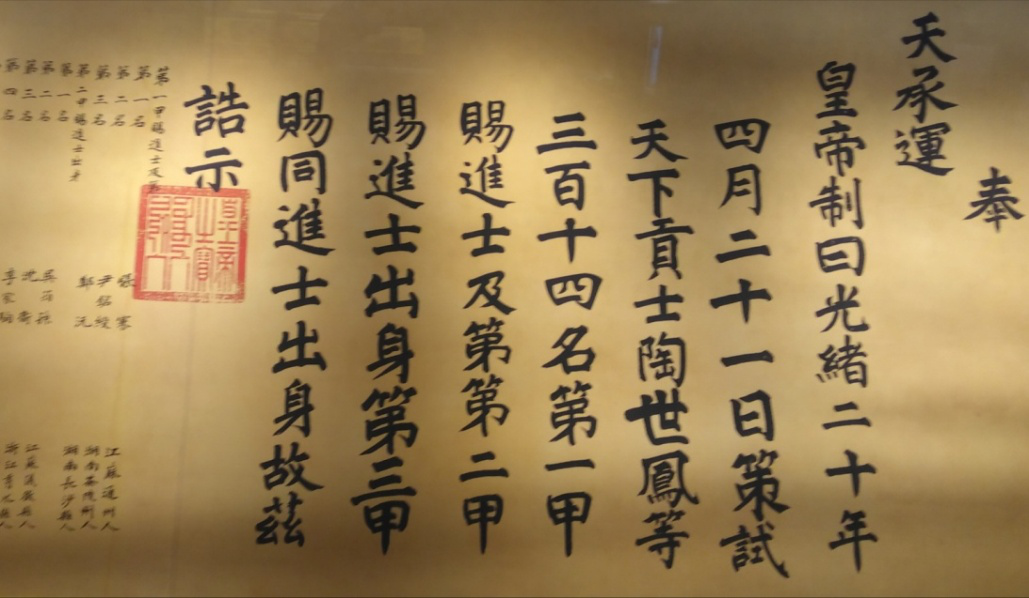 奉
天承運
皇帝制曰光緒二十年
四月二十一日策試
天下貢士陶世鳳等
三百十四名第一甲
賜進士及第第二甲
賜進士出身第三甲
賜同進士出身故茲
誥示
皇帝之寶
第一甲賜進士及
第一名 張謇 江蘇通州人
第二名 尹銘綬 湖南茶陵州人
第三名 鄭沅 湖南長沙縣人
第二甲賜進士出身
第一名 吳筠孫 江蘇儀徵縣人
第二名 沈衛 浙江秀水縣人
第三名 李家駒
第四名